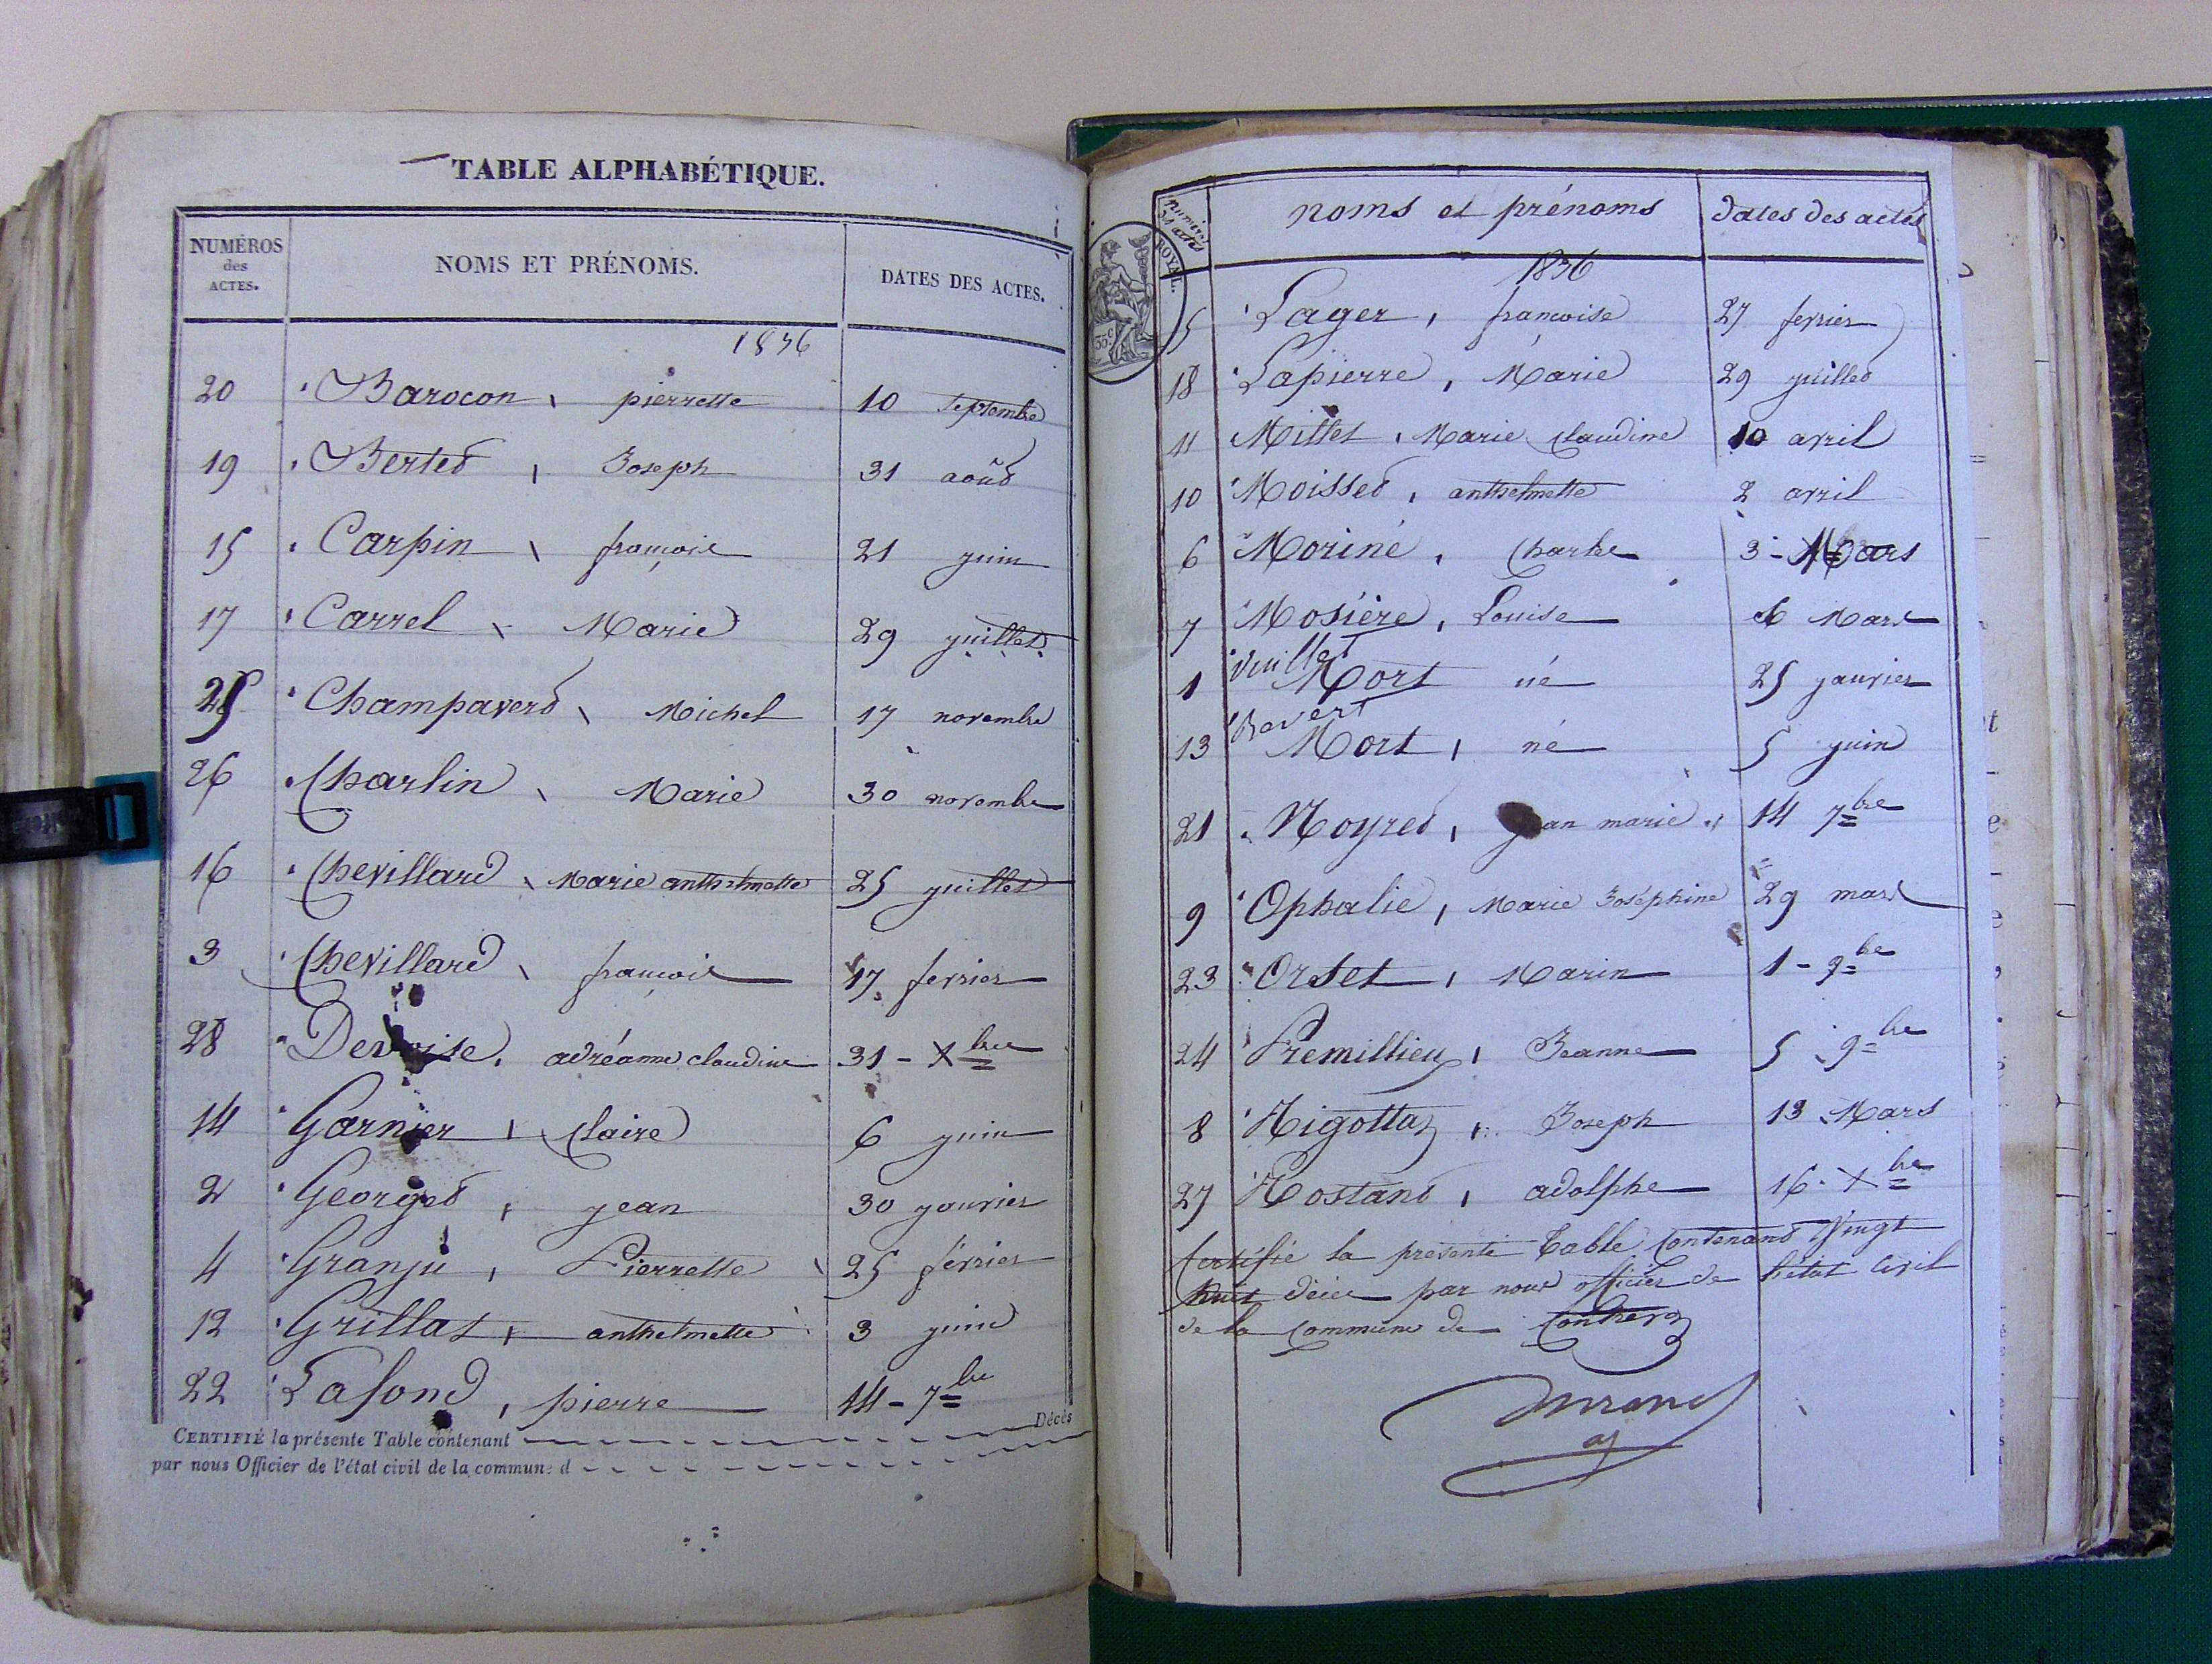 TABLE ALPHABÉTIQUE.
NUMÉROS des ACTES. NOMS ET PRÉNOMS. DATES DES ACTES.
1836
20 Barocon, pierrette 10 septembre
19 Bertet, Joseph 31 août
15 Carpin, françois 21 juin
17 Carrel, Marie 29 juillet
25 Champavert, Michel 17 novembre
26 Charlin, Marie 30 novembre
16 Chevillard, Marie anthelmette 25 juillet
3 Chevillard, françois 17 fevrier
28 adréanne claudine 31 - Xbre
14 Garnier, Claire 6 juin
2 Georget, jean 30 janvier
4 Granju, Pierrette 25 février
12 Grillat, anthelmette 3 juin
22 Lafond, pierre 14 - 7bre
CERTIFIÉ la présente Table contenant Décès
par nous Officier de l'état civil de la commune d
numéros des actes noms et prénoms dates des actes
ROYAL.
35c
1836
5 Lager, francoise 27 fevrier
18 Lapierre, Marie 29 juillet
11 Millet, Marie Claudine 10 avril
10 Moisset, anthelmette 2 avril
6 Moriné, Charles 3 - Mars
7 Mosière, Louise 6 Mars
Vuillet
1 Mort né 25 janvier
Revert
13 Mort, né 5 juin
21 Noyret, jean marie 14 7bre
9 Ophalie, Marie Joséphine 29 mars
23 Orset, Marin 1 - 9bre
24 Premillieu, Jeanne 5 - 9bre
8 Rigottaz, Joseph 13 Mars
27 Rostand, adolphe 16 - Xbre
Certifié la présente Table contenant Vingt
huit décès par nous officier de l'état Civil
de la commune de